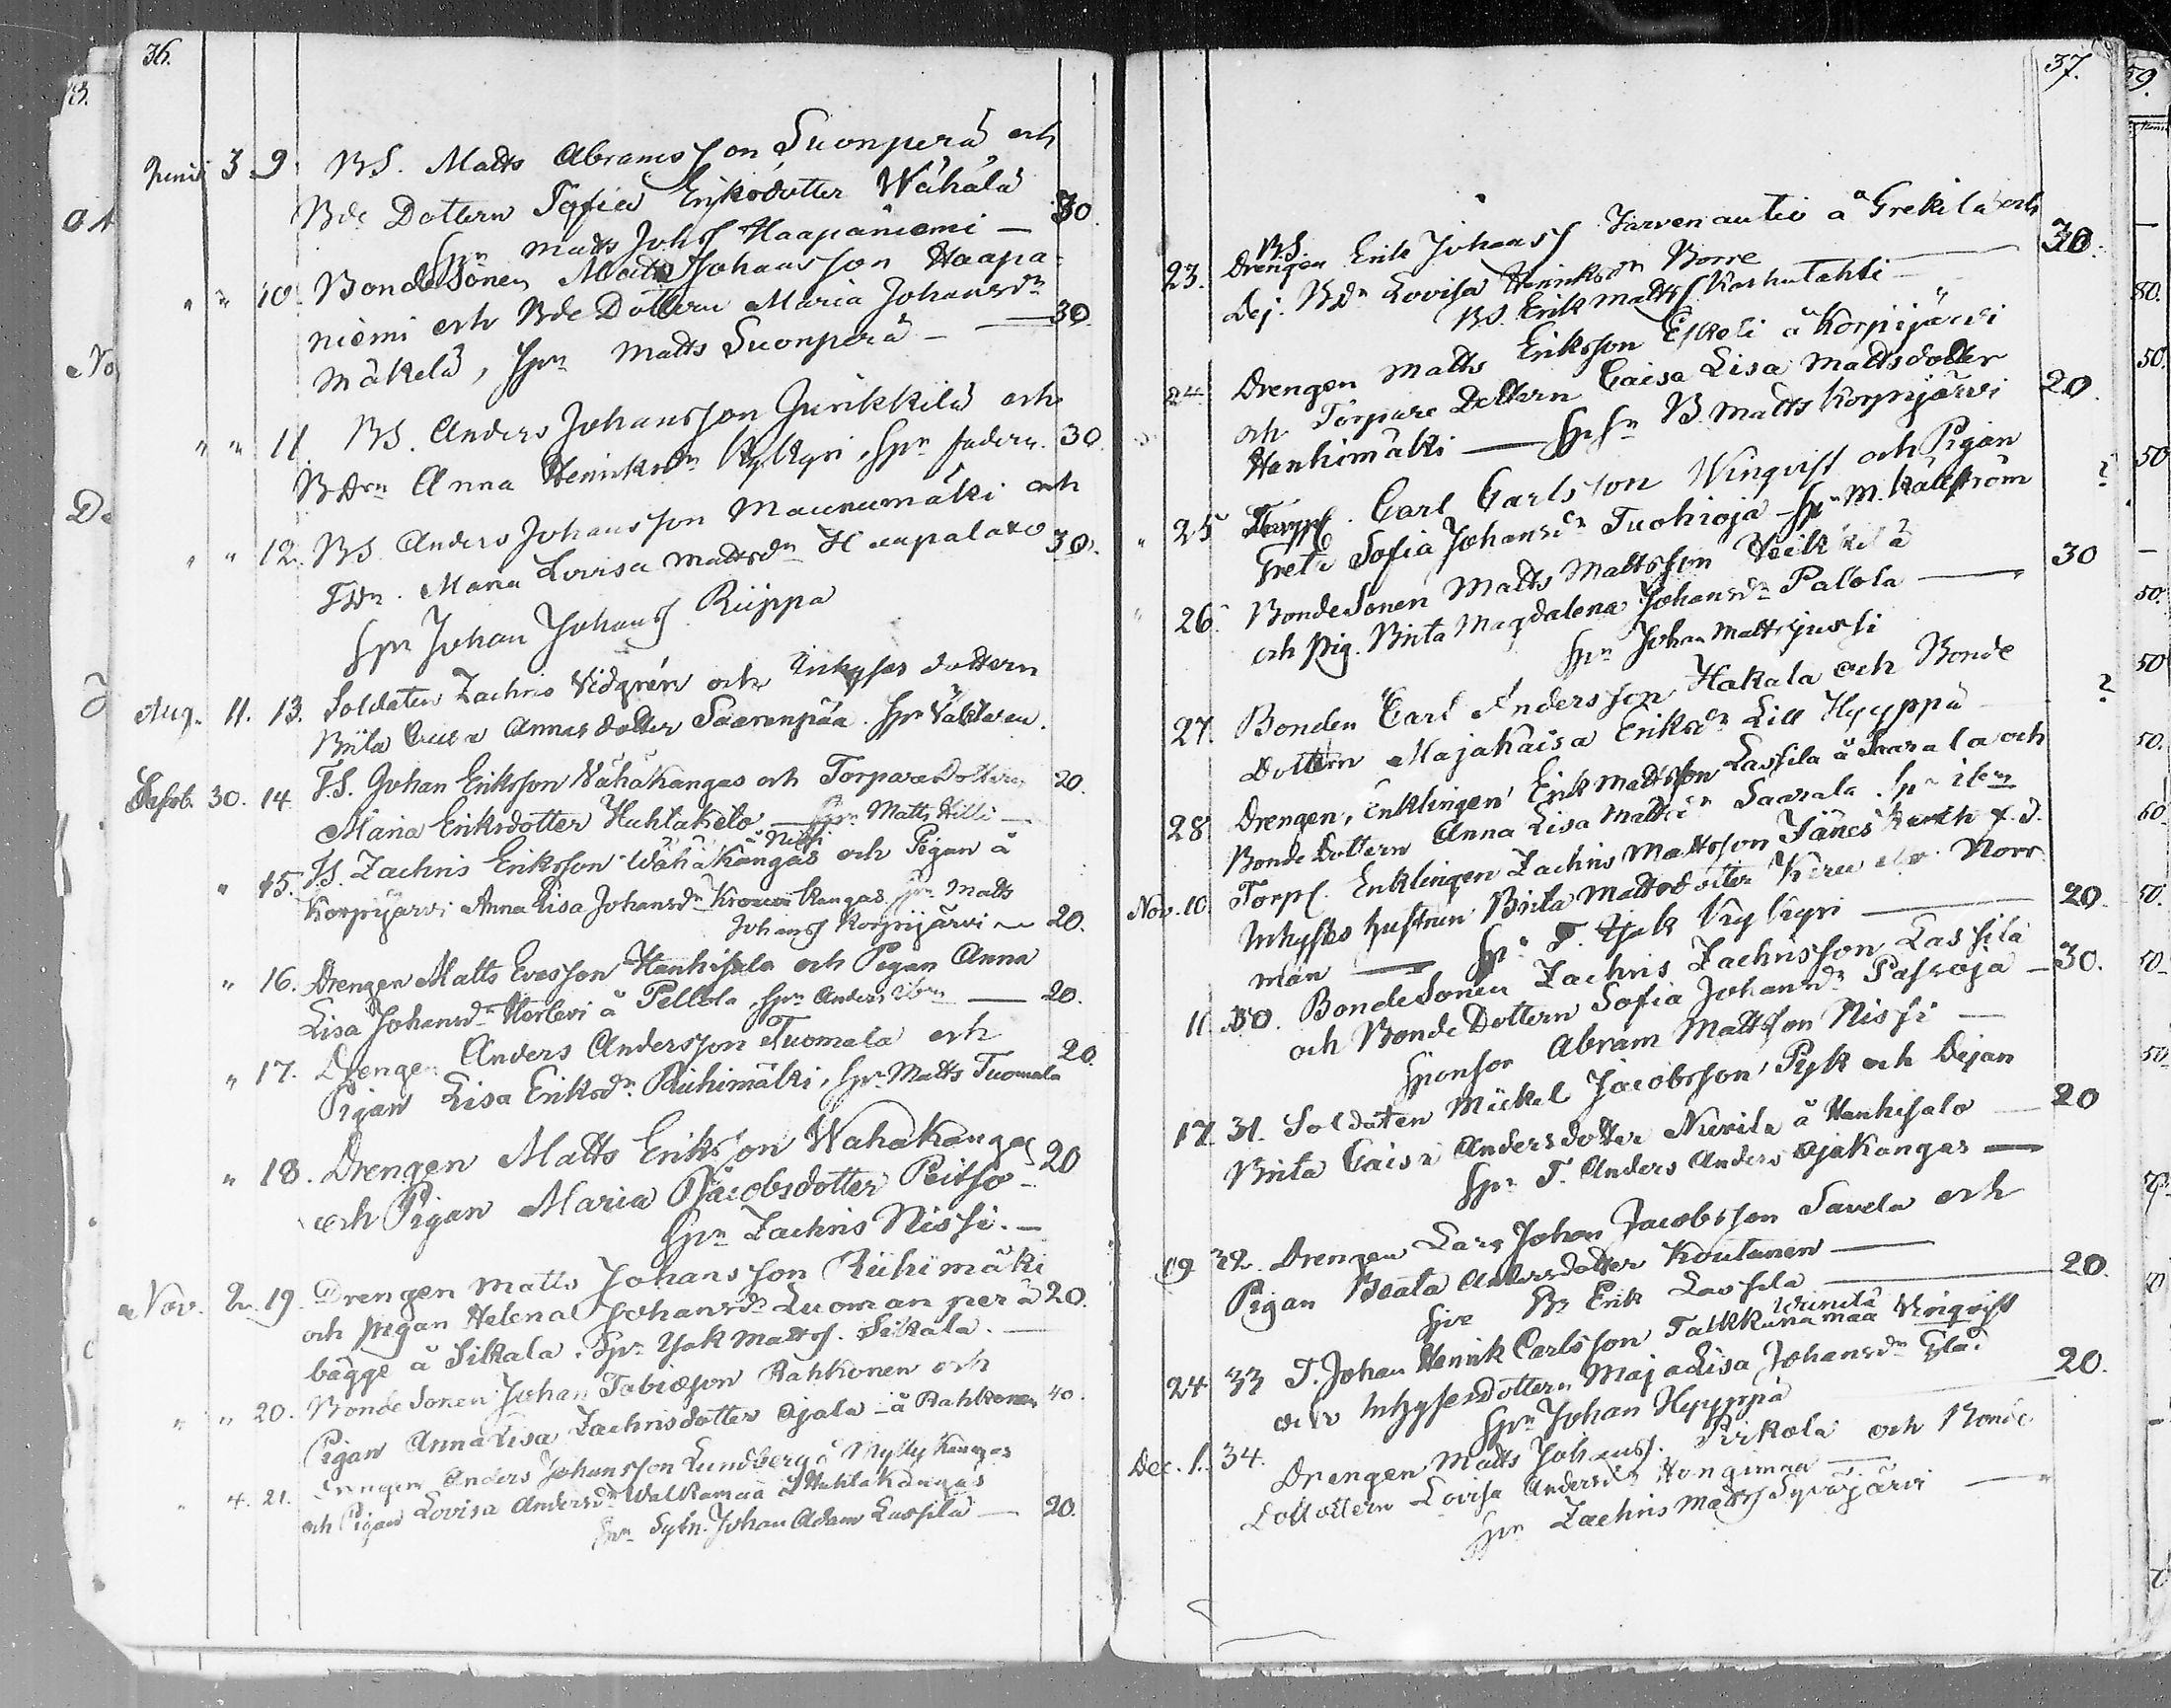 36.
Junii 3 9 BS. Matts Abramsson Suonperä och
Bde Dottern Sofia Eriksdotter Wähälä 30.
Spn Matts Johss Haapaniemi —
" " 10. Bonde Sonen Matts Johansson Haapa-
niemi och Bde Dottern Maria Johansdn
Mäkelä, Spn Matts Suonperä — 30.
" " 11. BS. Anders Johansson Junkkilä och
BDrn Anna Henriksdn Kykyri, Spn fadern. 30
" " 12. BS Anders Johansson Maunumäki och
TDn. Maria Lovisa Mattsdn Haapalaxo 30.
Spn Johan Johanss. Riippa
Aug. 11. 13. Soldaten Zachris Vidgrén och Inhyses dottern
Brita Annas dotter Saarenpää. Spn
Septb. 30. 14. T.S. Johan Eriksson Wähäkangas och Torpare Dottern 20.
Maria Eriksdotter Huhtaketo — Spn Matts Hilli —
Nissi
" 15. T.S. Zachris Eriksson Wähäkangas och Pigan å
Korpijärvi Anna Lisa Johansdn kangas Spn Matts
Johanss Korpijärvi — 20.
" 16. Drengen Matts Evesson Hanhisalo och Pigan Anna
Lisa Johansdn Herlevi å Pellola, Spn Anders — 20.
" 17. Drengen Anders Andersson Tuomala och
Pigan Lisa Eriksdn. Riihimäki, Spn Matts Tuomala 20.
" 18. Drengen Matts Eriksson Wähäkangas 20
och Pigan Maria Jacobsdotter Peitso —
Spn Zachris Nissi. —
Nov. 2. 19. Drengen Matts Johansson Riihimäki
och Pigan Helena Johansdn Luomanperä 20.
bägge å Sikala. Spn Isak Matts. Sikala. —
" " 20. Bonde Sonen Johan Tobiasson Rahkonen och
Pigan Anna Lisa Zachrisdotter Ojala å Rahkonen 40.
" 4. 21. Drengen Anders Johansson Lundberg å Myllykangas
och Pigan Lovisa Andersdn Walkamaa å Huhtakangas
Spn Sytn. Johan Adam Lassila — 20.
37.
BS.
23. Drengen Erik Johanss Järvenautio å Grekilä och
Dej. BDn Lovisa Henriksdn Borre — 30.
BS. Erik Matts Karhulahti —
24 Drengen Matts Eriksson Eskoli å Korpijärvi
och Torpare Dottern Caisa Lisa Mattsdotter
Hanhimäki — Spsn B. Matts Korpijärvi 20
" 25 Torpf. Carl Carlsson Winqvist och Pigan
Greta Sofia Johansdn Tuohioja — Spn M. Källström ?
" 26. Bonde Sonen Matts Mattsson Veikkila
och Pig. Brita Magdalena Johansdn Palola — 30
Spn Johan Matts Jussi
27. Bonden Carl Andersson Hakala och Bonde
Dottern Maja Kaisa Eriksdn Lill Hyyppä ?
28 Drengen, Enklingen Erik Mattsson Lassila å Saarala och
Bonde Dottern Anna Lisa Mattsdn Saarala. Spn
Nov. 10. Torpf. Enklingen Zachris Mattsson Jänes
Inhyses hustrun Brita Mattsdotter Norr
man — Spn T. Isak Kykyri — 20.
11 30. Bonde Sonen Zachris Zachrisson Lassila
och Bonde Dottern Sofia Johansdn Pasioja — 30.
Sponsor Abram Mattsson Nissi —
17. 31. Soldaten Mickel Jacobsson Pyk och Dejan
Brita Caisa Andersdotter Niemilä å Hanhisalo — 20
Spn T. Anders Anders Ojakangas —
19 32. Drengen Lars Johan Jacobsson Savela och
Pigan Beata Andersdotter Koutonen —
Spn Bn Erik Lassila — 20.
24 33 T. Johan Henrik Carlsson Talkkunamaa Winqvist
och Inhysesdottern Maja Lisa Johansdn Glad
Spn Johan Hyyppä — 20.
Dec. 1. 34. Drengen Matts Johanss. Pirkola och Bonde
Dottern Lovisa Andersdn Hongimaa —
Spn Zachris Matts Syväjärvi —